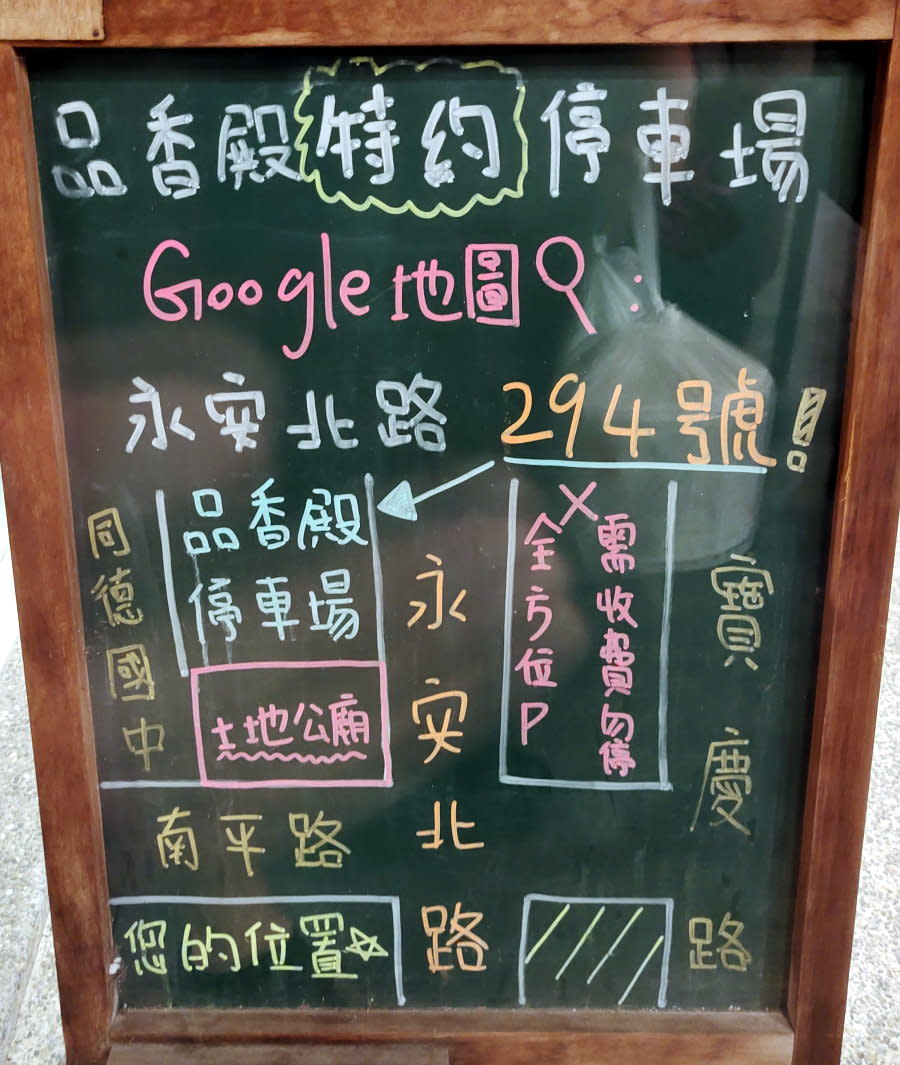 品香殿特約停車場
Google地圖：
永安北路 294號！
品香殿
停車場
土地公廟
同德國中
永安北路
X
全方位P
需收費勿停
寶慶路
南平路
您的位置☆